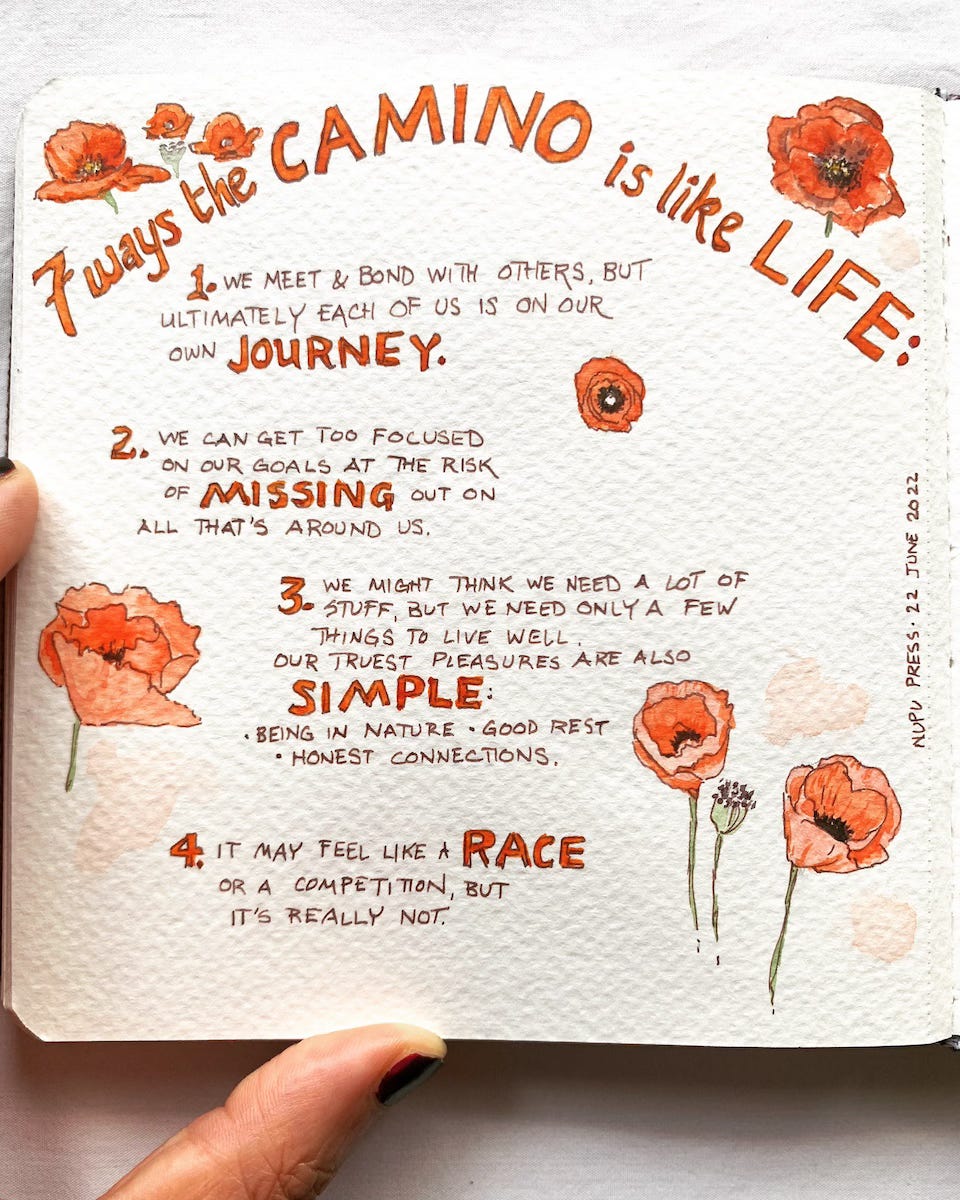 7 ways the CAMINO is like LIFE:
1. WE MEET & BOND WITH OTHERS, BUT
ULTIMATELY EACH OF US IS ON OUR
OWN JOURNEY.
2. WE CAN GET TOO FOCUSED
ON OUR GOALS AT THE RISK
OF MISSING OUT ON
ALL THAT'S AROUND US.
3. WE MIGHT THINK WE NEED A LOT OF
STUFF, BUT WE NEED ONLY A FEW
THINGS TO LIVE WELL.
OUR TRUEST PLEASURES ARE ALSO
SIMPLE:
• BEING IN NATURE • GOOD REST
• HONEST CONNECTIONS.
4. IT MAY FEEL LIKE A RACE
OR A COMPETITION, BUT
IT'S REALLY NOT.
NUPU PRESS • 22 JUNE 2022